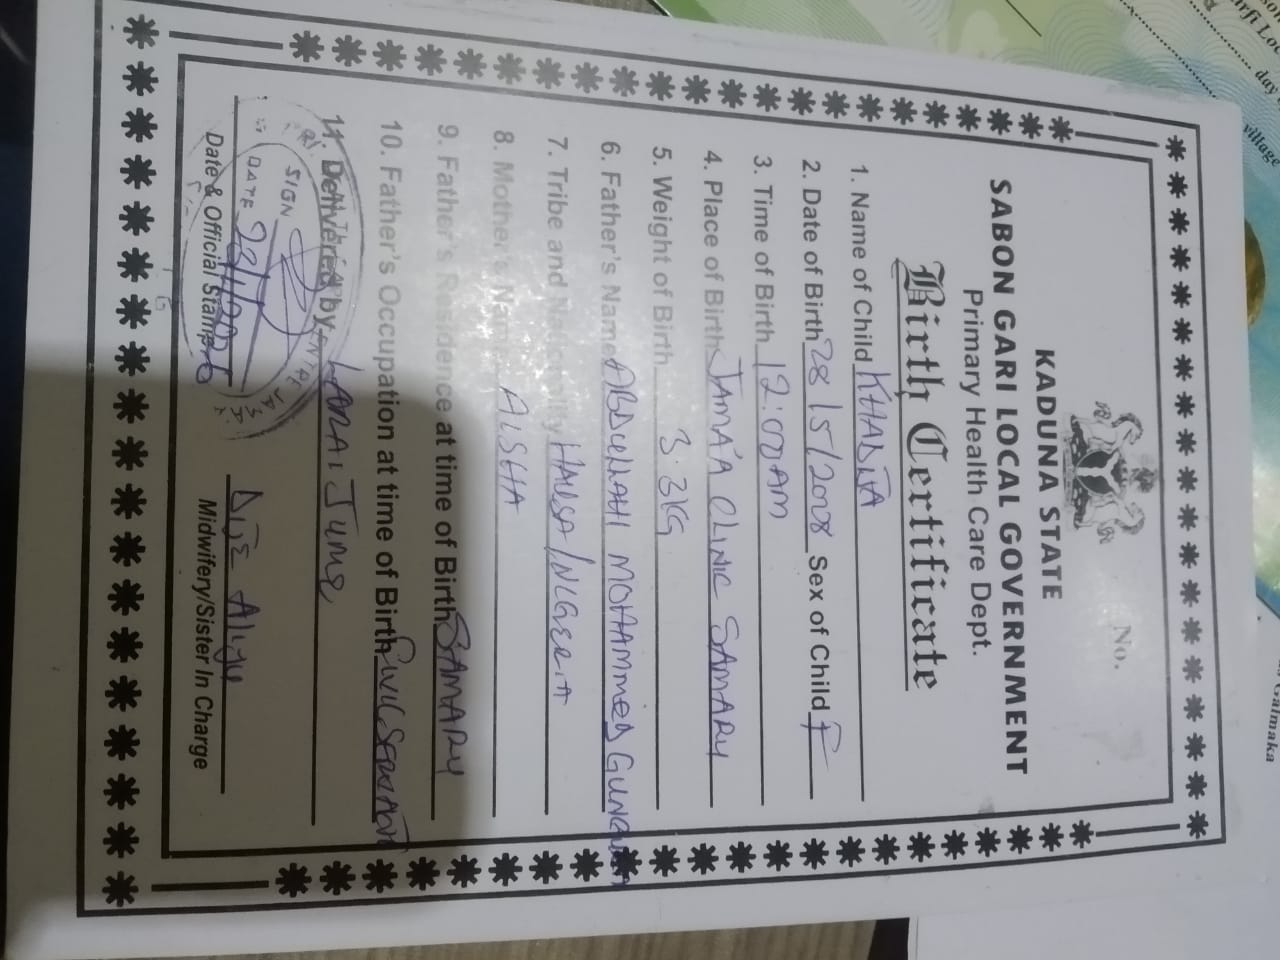 No.
KADUNA STATE
SABON GARI LOCAL GOVERNMENT
Primary Health Care Dept.
Birth Certificate
1. Name of Child KHADIJA
2. Date of Birth 28/5/2008 Sex of Child F
3. Time of Birth 12:00AM
4. Place of Birth JAMA'A CLINIC SAMARU
5. Weight of Birth 3.3KG
6. Father's Name ABDULLAHI MOHAMMED
7. Tribe and Nationality HAUSA/NIGERIA
8. Mother's Name AISHA
9. Father's Residence at time of Birth SAMARU
10. Father's Occupation at time of Birth CIVIL SERVANT
11. Delivered by LARAI
SIGN
DATE
Date & Official Stamp
DIJE ALIYU
Midwifery/Sister In Charge
village
Gaimaka